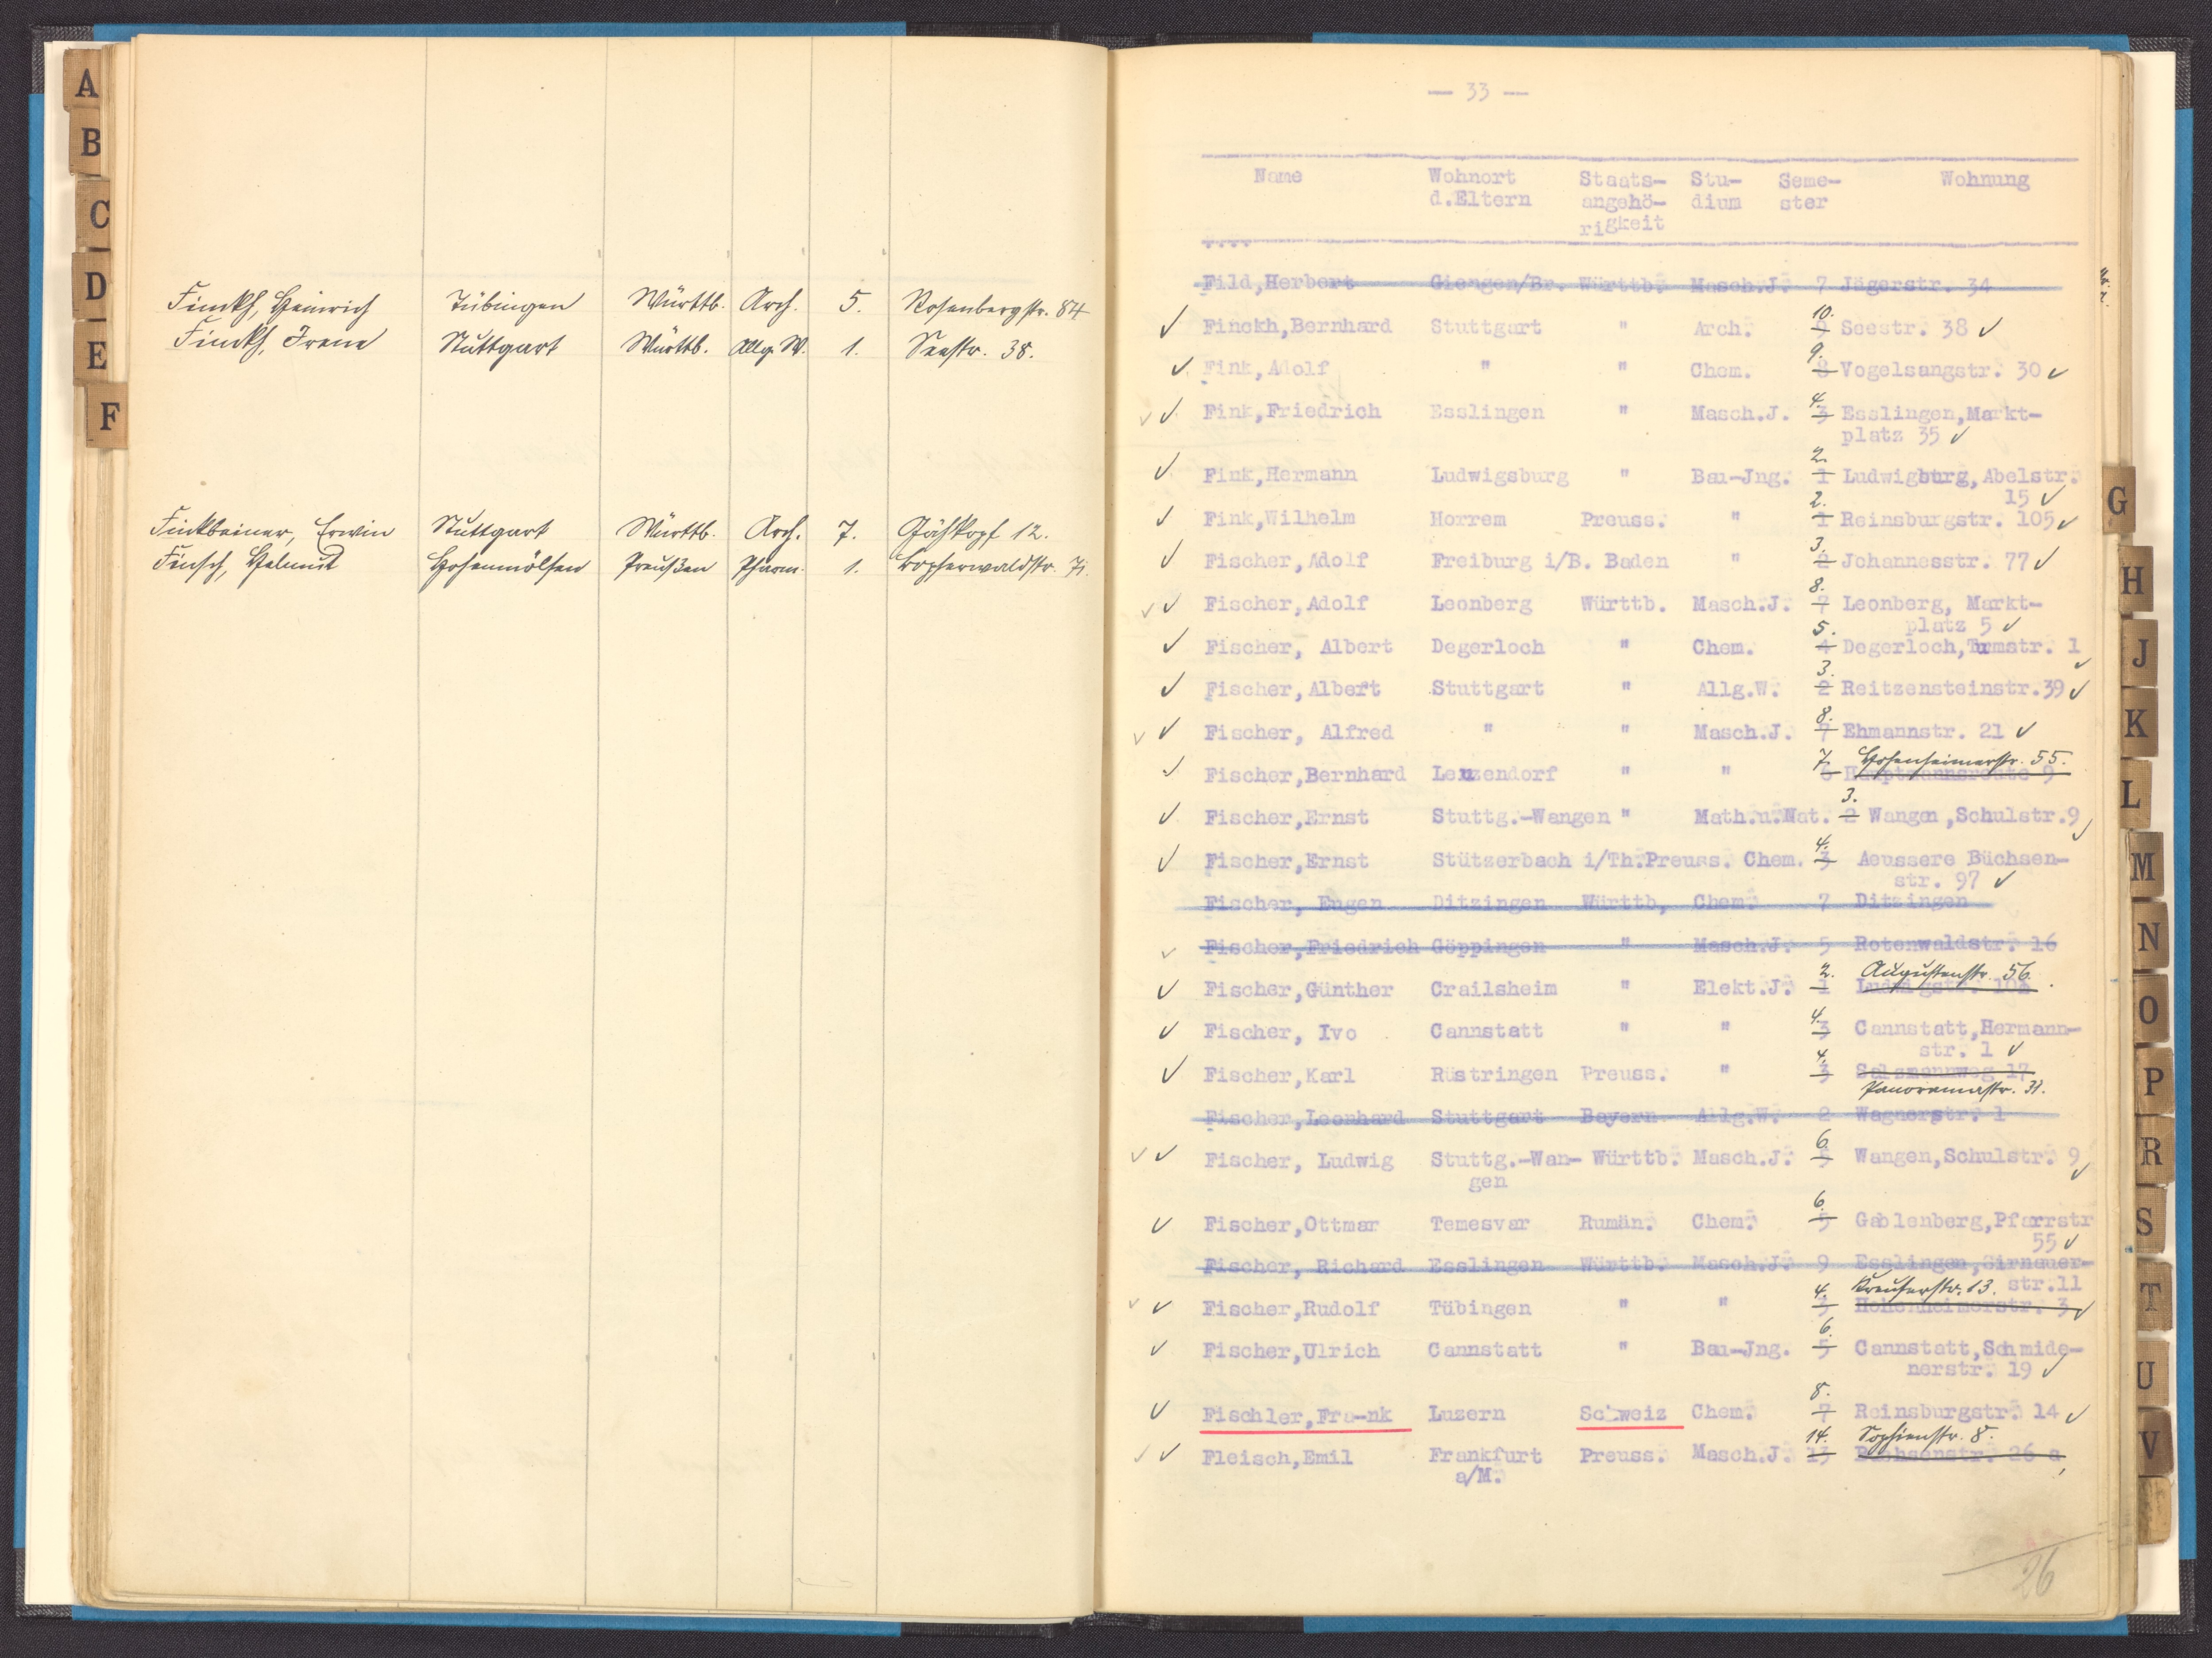 A
B
C
D
E
F
Finckh, Heinrich Tübingen Württb. Arch. 5. Rosenbergstr. 84
Finckh, Irene Stuttgart Württb. Allg. W. 1. Seestr. 38.
Finkbeiner, Erwin Stuttgart Württb. Arch. 7. 12.
Finsch, Helmut Hohenmölsen Preußen Pharm. 1. Hopserwaldstr. 71.
— 33 —
Name Wohnort d.Eltern Staats-angehö-rigkeit Stu-dium Seme-ster Wohnung
....
Fild,Herbert Giengen/Br. Württb. Masch.J. 7 Jägerstr. 34
✓ Finckh,Bernhard Stuttgart " Arch. 9 10. Seestr. 38 ✓
✓ Fink,Adolf " " Chem. 8 9. Vogelsangstr. 30 ✓
✓ ✓ Fink,Friedrich Esslingen " Masch.J. 3 4. Esslingen,Markt-
platz 35 ✓
✓ Fink,Hermann Ludwigsburg " Bau-Jng. 1 2. Ludwigburg,Abelstr.
15 ✓
✓ Fink,Wilhelm Horrem Preuss. " 1 2. Reinsburgstr. 105 ✓
✓ Fischer,Adolf Freiburg i/B. Baden " 2 3. Johannesstr. 77 ✓
✓ ✓ Fischer,Adolf Leonberg Württb. Masch.J. 7 8. Leonberg, Markt-
platz 5 ✓
✓ Fischer, Albert Degerloch " Chem. 4 5. Degerloch,Turmstr. 1
✓
✓ Fischer,Albert Stuttgart " Allg.W. 2 3. Reitzensteinstr.39 ✓
✓ ✓ Fischer, Alfred " " Masch.J. 7 8. Ehmannstr. 21 ✓
✓ Fischer,Bernhard Leuzendorf " " 6 7. Hohenheimerstr. 55.
Hauptmannsreute 9
✓ Fischer,Ernst Stuttg.-Wangen " Math.u.Nat. 2 3. Wangen ,Schulstr.9 ✓
✓ Fischer,Ernst Stützerbach i/Th.Preuss. Chem. 3 4. Aeussere Büchsen-
str. 97 ✓
Fischer, Eugen Ditzingen Württb, Chem. 7 Ditzingen
✓ Fischer,Friedrich Göppingen " Masch.J. 5 Rotenwaldstr. 16
✓ Fischer,Günther Crailsheim " Elekt.J. 1 2. Augustenstr. 56.
Ludwigstr.
✓ Fischer, Ivo Cannstatt " " 3 4. Cannstatt,Hermann-
str. 1 ✓
✓ Fischer,Karl Rüstringen Preuss. " 3 4. Salzmannweg 17
Panoramastr. 31.
Fischer,Leonhard Stuttgart Bayern Allg.W. 2 Wagnerstr. 1
✓ ✓ Fischer, Ludwig Stuttg.-Wan- Württb. Masch.J. 5 6. Wangen,Schulstr. 9 ✓
gen
✓ Fischer,Ottmar Temesvar Rumän. Chem. 5 6. Gablenberg,Pfarrstr
55 ✓
Fischer, Richard Esslingen Württb. Masch.J. 9 Esslingen,Sirnauer-
str.11
✓ ✓ Fischer,Rudolf Tübingen " " 3 4. Kreuserstr. 13.
Hohenheimerstr. 3 ✓
✓ Fischer,Ulrich Cannstatt " Bau-Jng. 5 6. Cannstatt,Schmide-
nerstr. 19 ✓
✓ Fischler,Fra-nk Luzern Schweiz Chem. 7 8. Reinsburgstr. 14 ✓
✓ ✓ Fleisch,Emil Frankfurt Preuss. Masch.J. 13 14. Sophienstr. 8.
a/M. Büchsenstr. 26 a
26
G
H
J
K
L
M
N
O
P
R
S
T
U
V